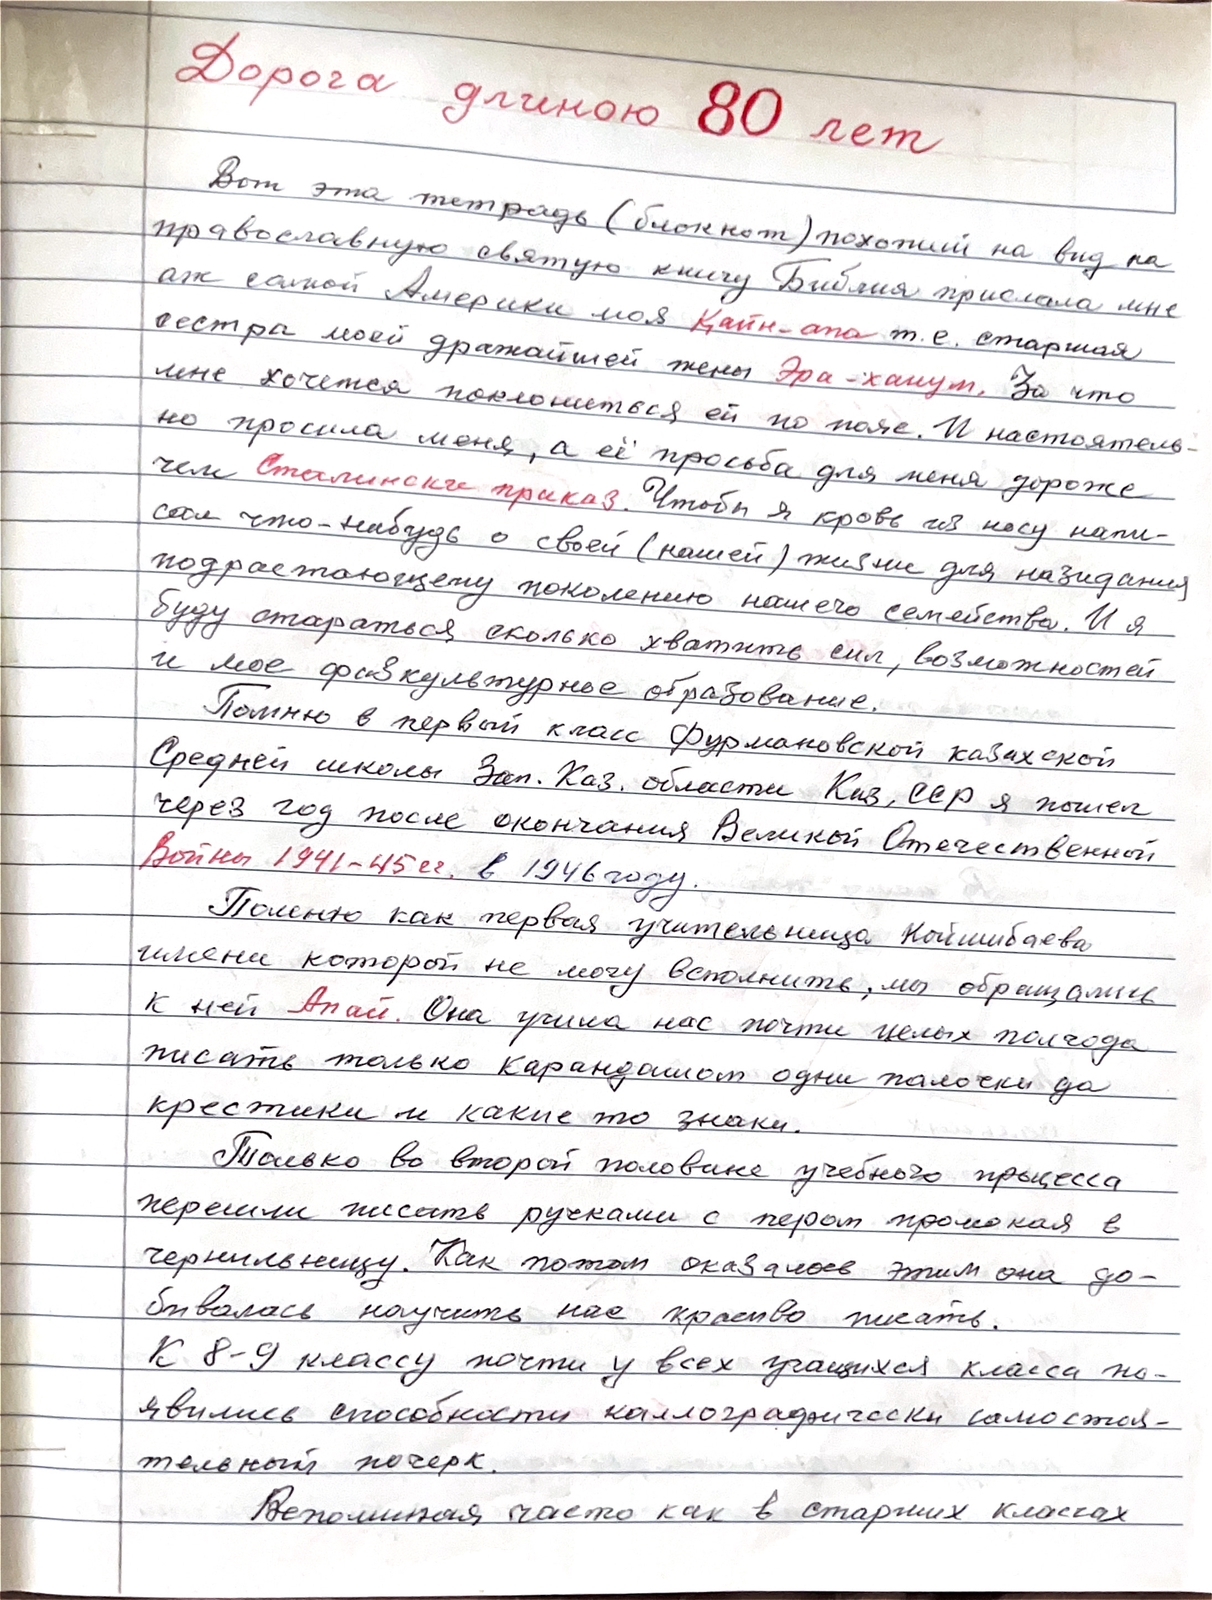 Дорога длиною 80 лет
Вот эта тетрадь (блокнот) похожий на вид на
православную святую книгу Библия прислала мне
аж самой Америки моя Қайн-апа т.е. старшая
сестра моей дражайшей жены Эра-ханум. За что
мне хочется поклониться ей по пояс. И настоятель-
но просила меня, а её просьба для меня дороже
чем Сталински приказ. Чтобы я кровь из носу напи-
сал что-нибудь о своей (нашей) жизни для назидания
подрастающему поколению нашего семейства. И я
буду стараться сколько хватить сил, возможностей
и мое физкультурное образование.
Помню в первый класс Фурмановской казахской
Средней школы Зап. Каз. области Каз. ССР я пошел
через год после окончания Великой Отечественной
Войны 1941-45 гг. в 1946 году.
Помню как первая учительница Койшибаева
имени которой не могу вспомнить, мы обращались
к ней Апай. Она учила нас почти целых полгода
писать только карандашом одни палочки да
крестики и какие то знаки.
Только во второй половине учебного процесса
перешли писать ручками с пером промокая в
чернильницу. Как потом оказалось этим она до-
бивалась научить нас красиво писать.
К 8-9 классу почти у всех учащихся класса по-
явились способности каллографически самостоя-
тельный почерк.
Вспоминая часто как в старших классах